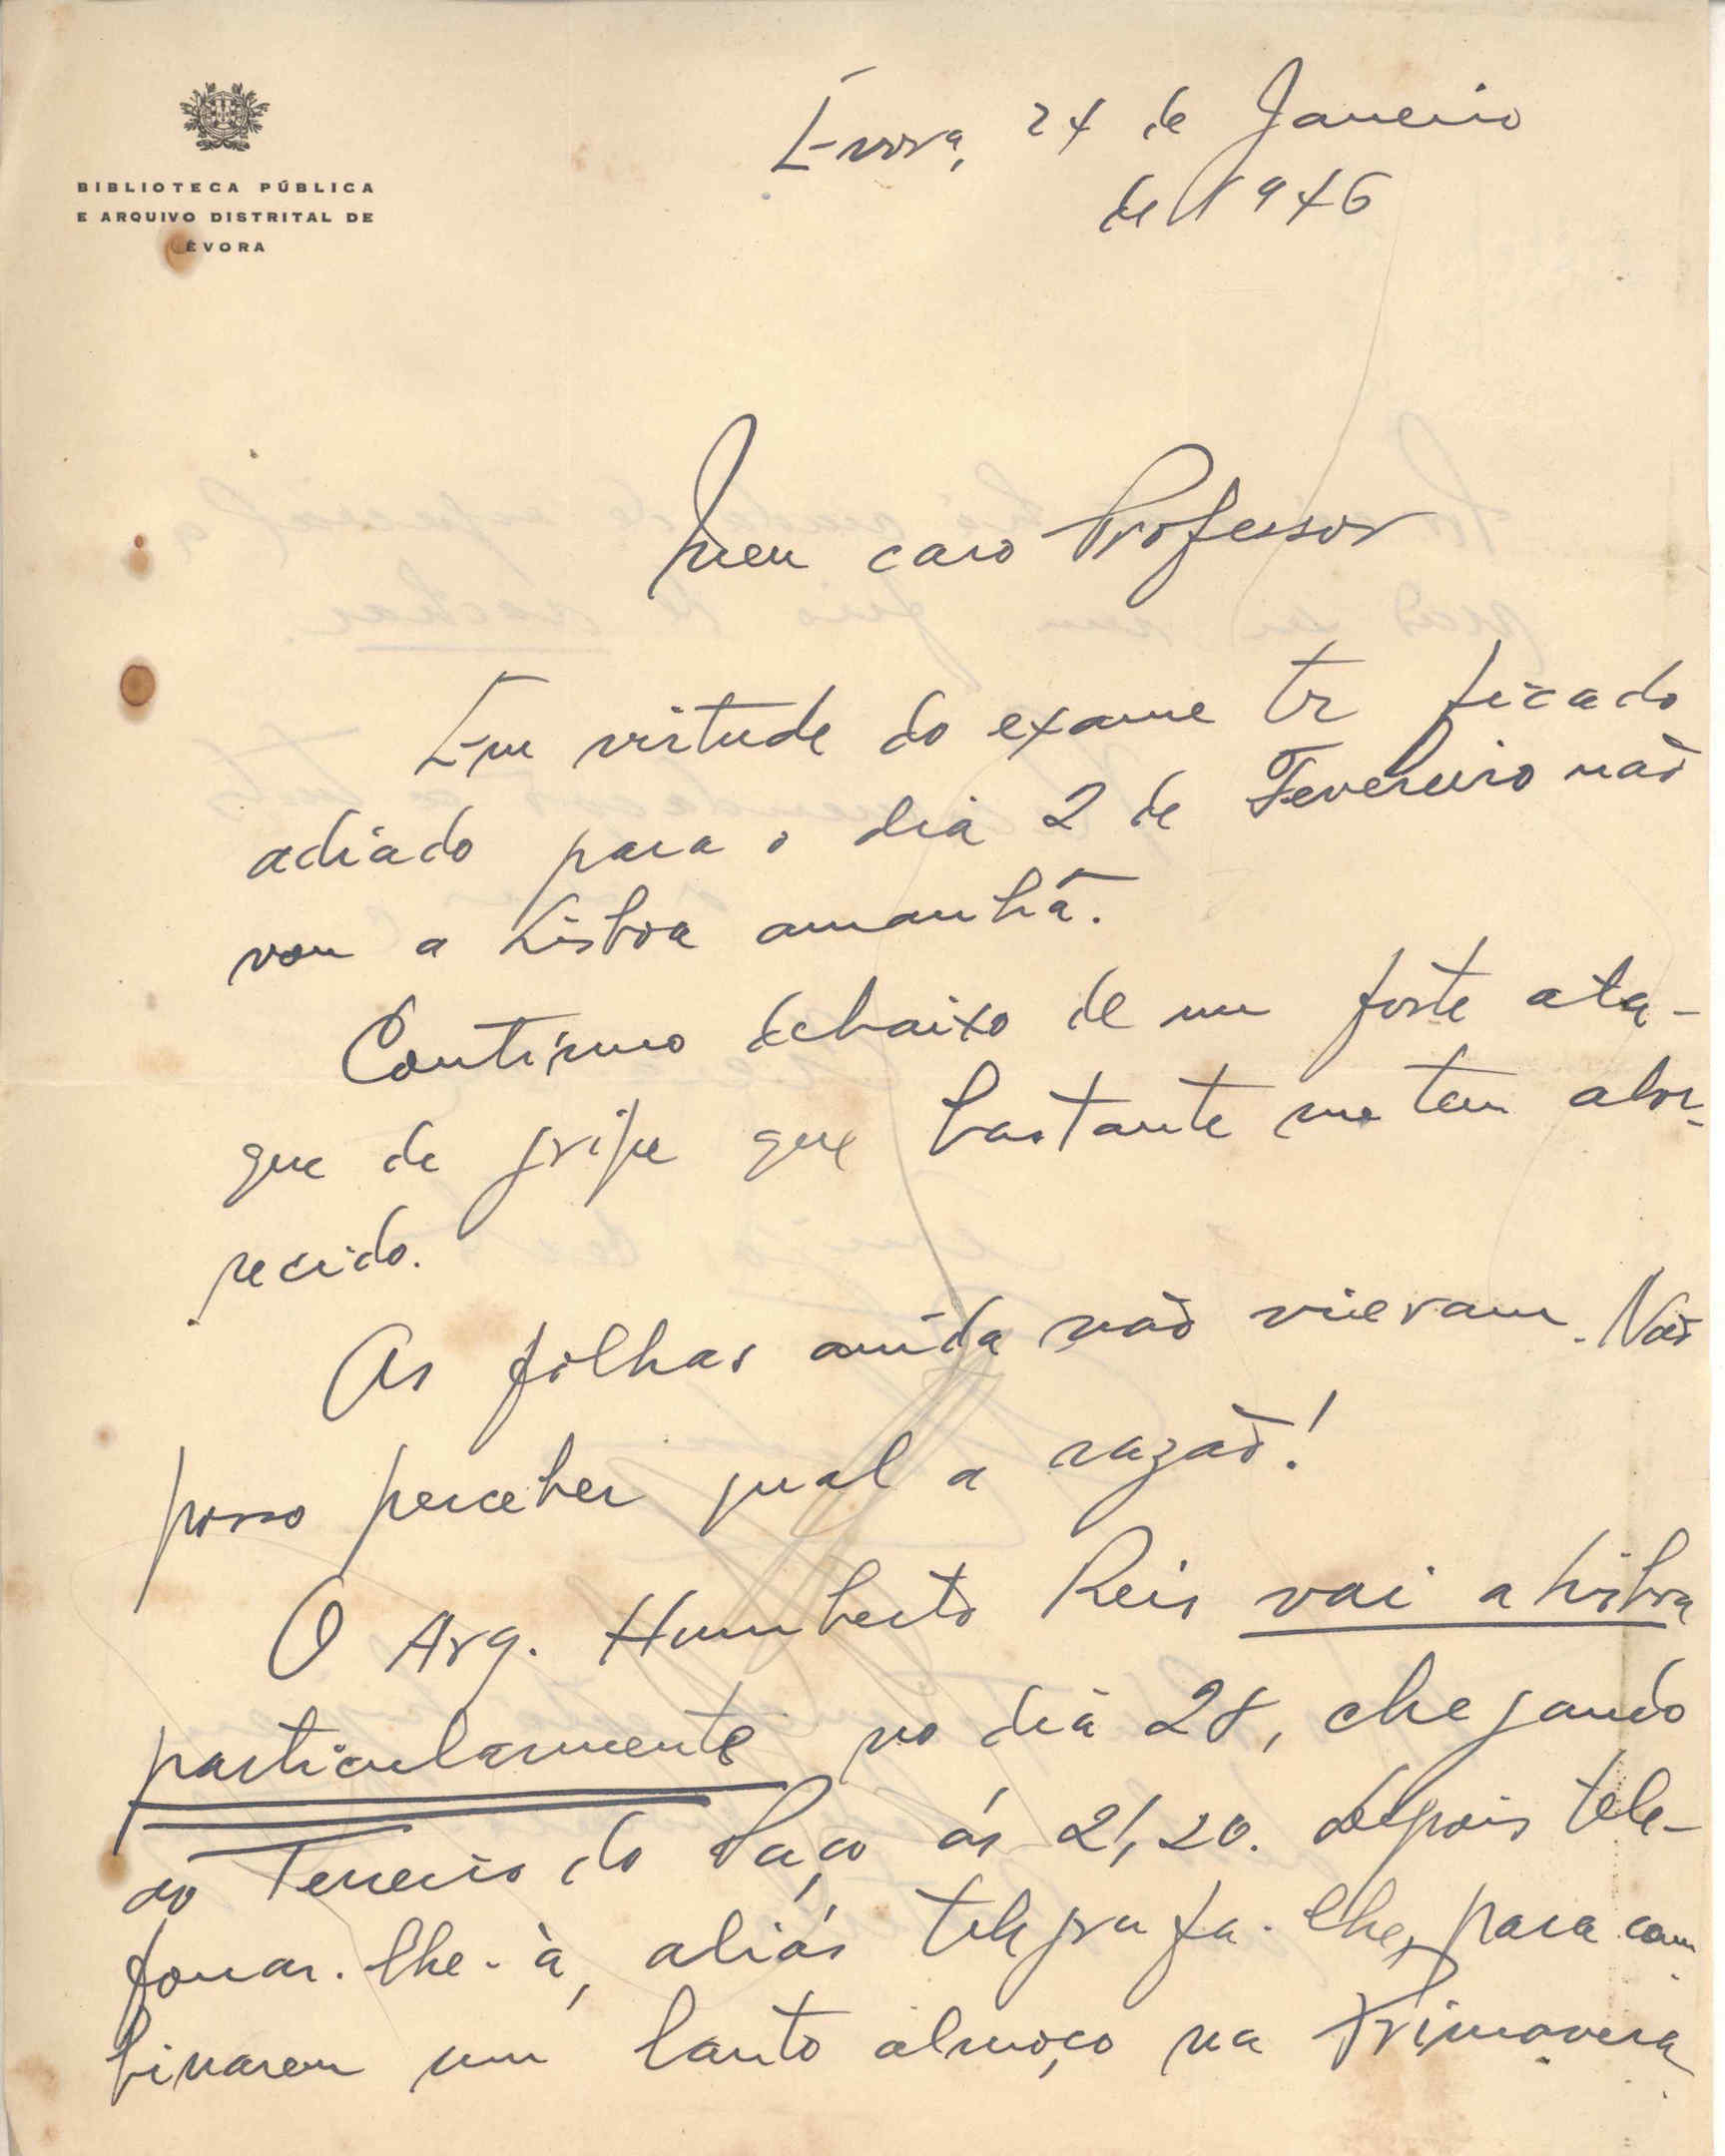 BIBLIOTECA PÚBLICA
E ARQUIVO DISTRITAL DE
ÉVORA
Évora, 24 de Janeiro
de 1946
Meu caro Professor
Em virtude do exame ter ficado
adiado para o dia 2 de Fevereiro não
vou a Lisboa amanhã.
Continuo debaixo de um forte ata-
que de gripe que bastante me tem abor-
recido.
As folhas ainda não vieram. Não
posso perceber qual a razão!
O Arq. Humberto Reis vai a Lisboa
particularmente no dia 28, chegando
ao Terreiro do Paço ás 21,20. Depois tele-
fonar-lhe-à, aliás telegrafa-lhe, para com
binarem um lauto almoço na Primavera